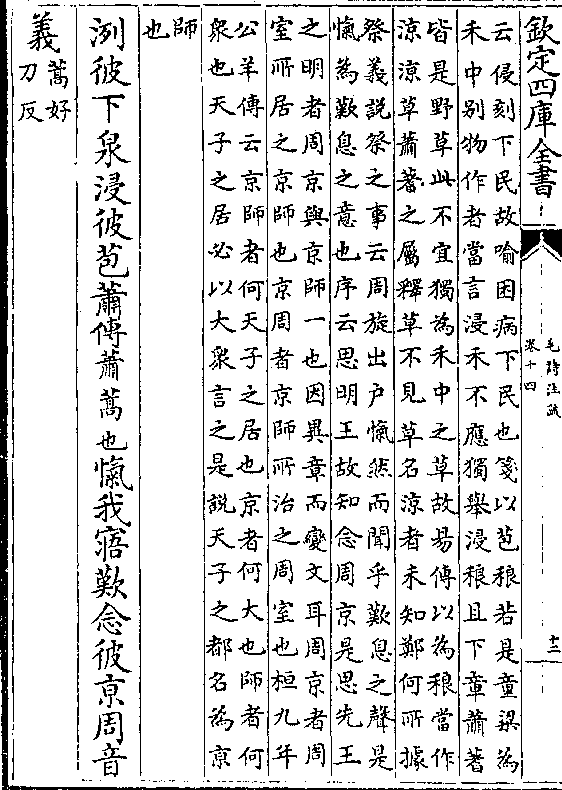 欽定四庫全書
毛詩注疏
卷十四
十二
云侵刻下民故喻困病下民也箋以苞稂若是童粱為
禾中别物作者當言浸禾不應獨舉浸稂且下章蕭蓍
皆是野草此不宜獨為禾中之草故易傳以為稂當作
涼涼草蕭蓍之屬釋草不見草名涼者未知鄭何所據
祭義説祭之事云周旋出户愾然而聞乎歎息之聲是
愾為歎息之意也序云思明王故知念周京是思先王
之明者周京與京師一也因異章而變文耳周京者周
室所居之京師也京周者京師所治之周室也桓九年
公羊傳云京師者何天子之居也京者何大也師者何
衆也天子之居必以大衆言之是説天子之都名為京
師
也
洌彼下泉浸彼苞蕭傳蕭蒿也愾我寤歎念彼京周音
義
蒿好
刀反